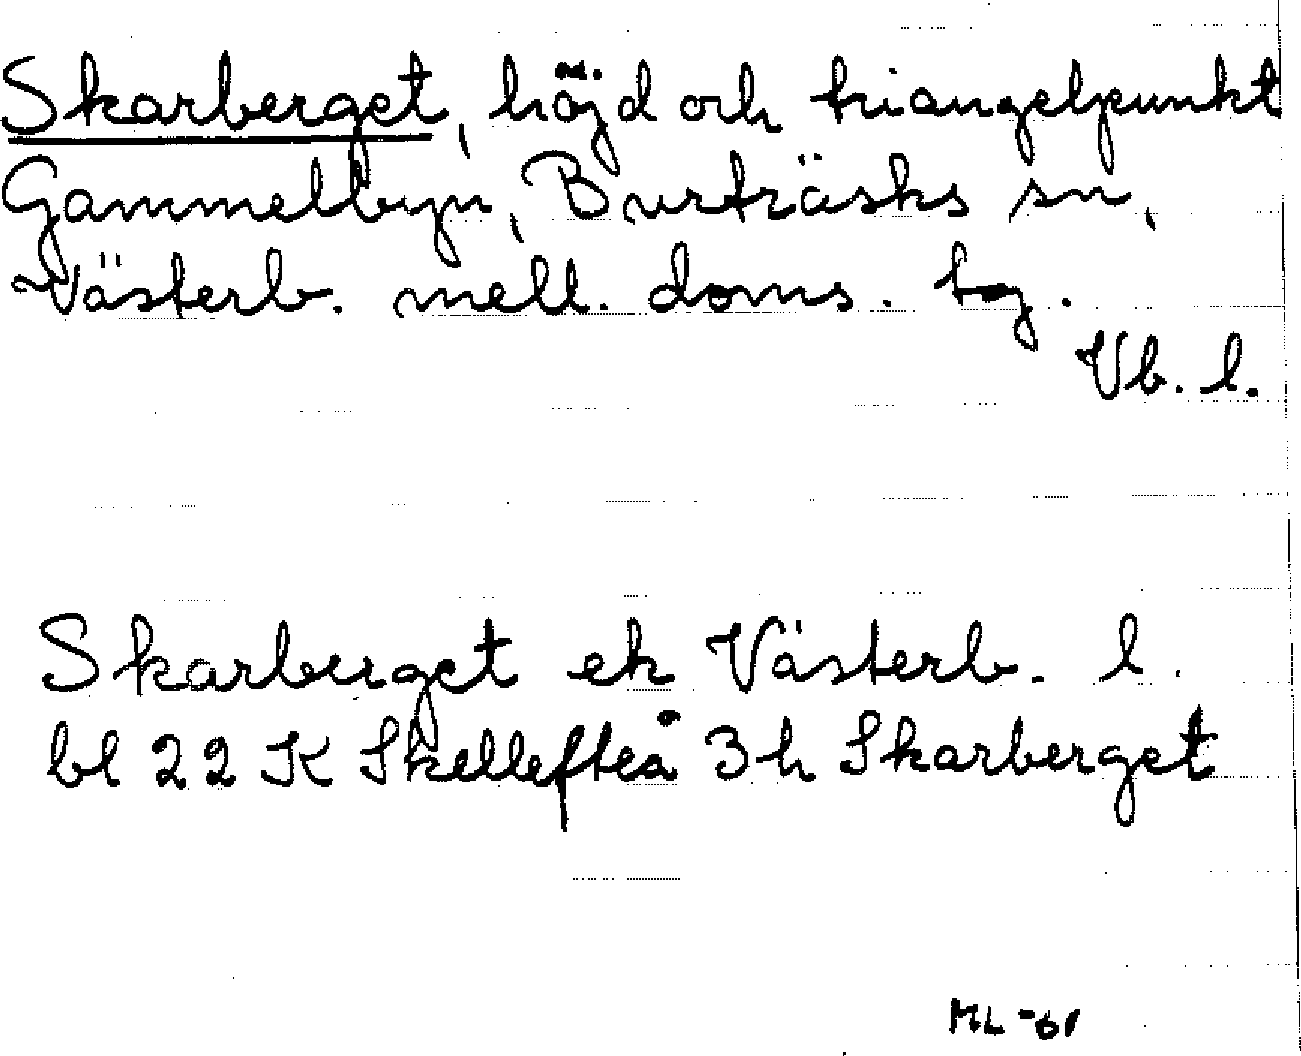 Skarberget, höjd och triangelpunkt
Gammelbyn, Burträsks sn,
Västerb. mell. doms. tg.
Vb. l.
Skarberget ek Västerb. l.
bl 22 K Skellefteå 3h Skarberget
ML -61